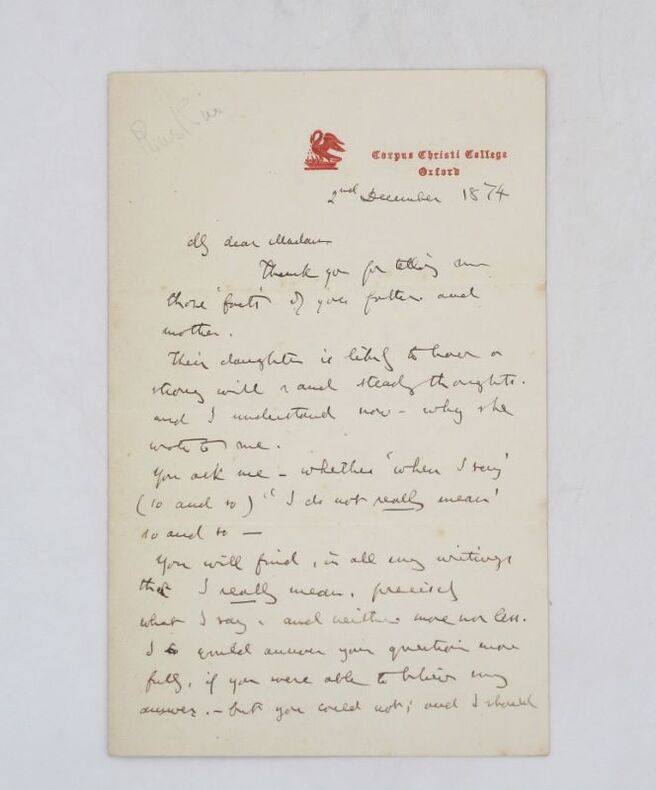 Corpus Christi College
Oxford
2nd December 1874
My dear Madam
Thank you for telling me
those 'facts' of your father and
mother.
Their daughter is likely to have a
strong will and steady thoughts.
and I understand now - why she
wrote to me.
You ask me - whether "when I say'
(so and so) " I do not really mean'
so and so —
You will find, in all my writings
that I really mean, precisely
what I say, and neither more nor less.
I could answer your question more
fully, if you were able to believe my
answer. - but you could not; and I should